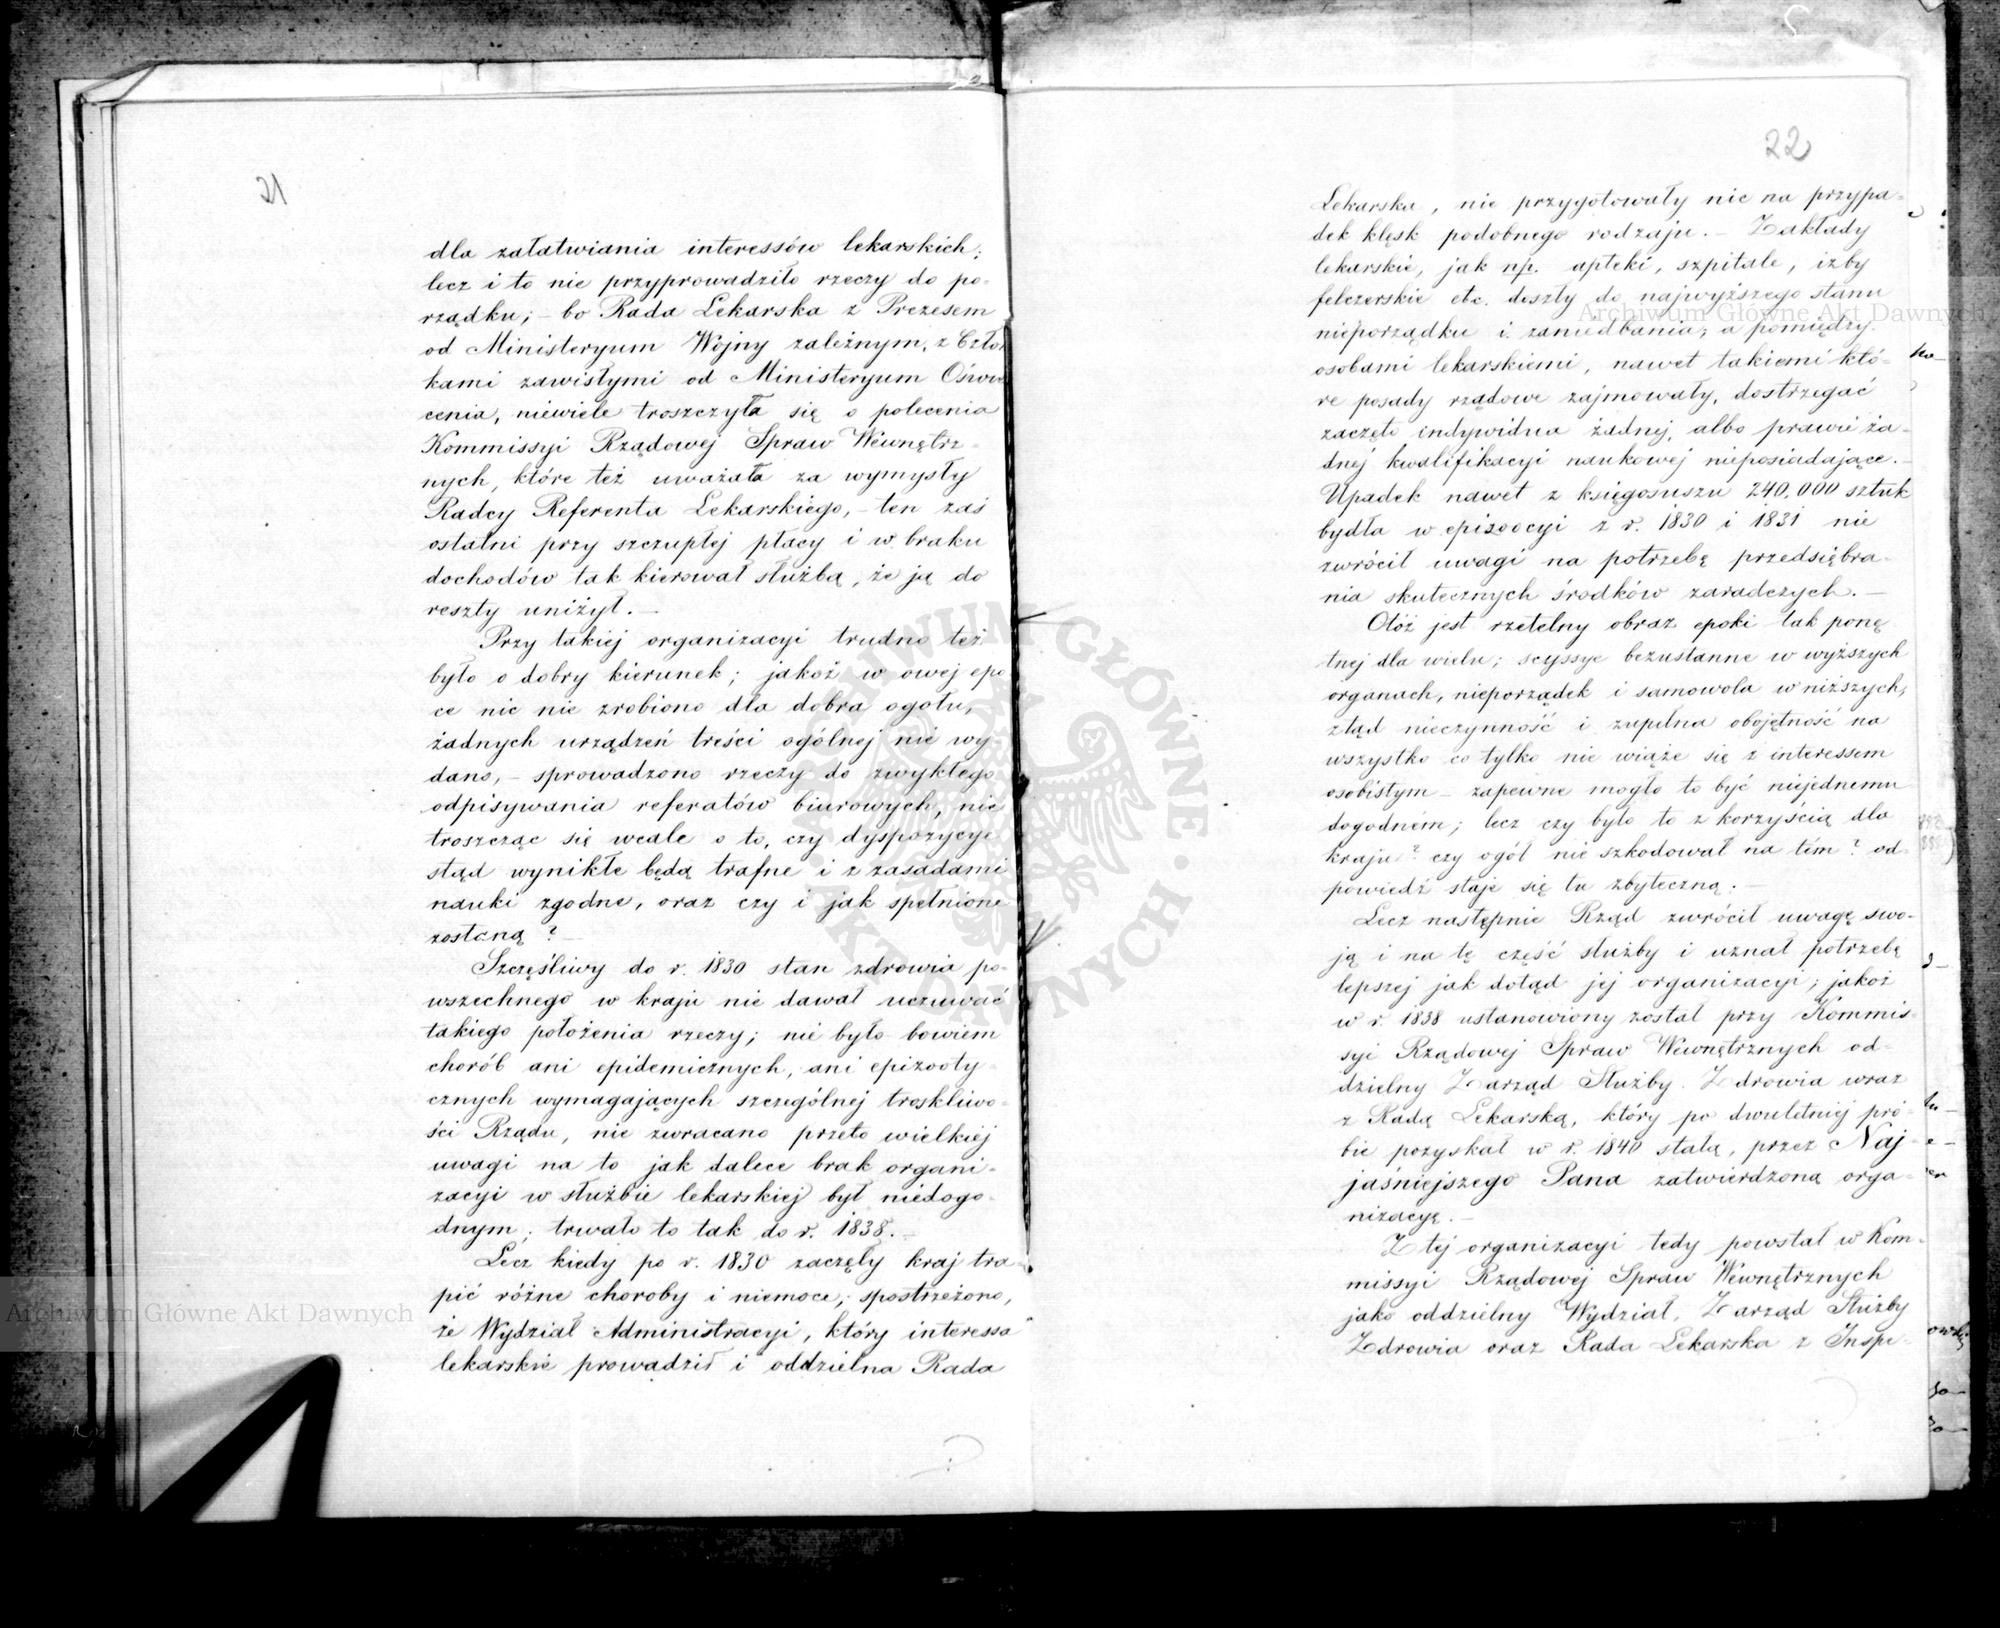 21
dla załatwiania interessów lekarskich;
lecz i to nie przyprowadziło rzeczy do po-
rządku; – bo Rada Lekarska z Prezesem
od Ministeryum Wojny zależnym, z Człon
kami zawisłymi od Ministeryum Oświe
cenia, niewiele troszczyła się o polecenia
Kommissyi Rządowej Spraw Wewnętrz-
nych, które też uważała za wymysły
Radcy Referenta Lekarskiego, – ten zaś
ostatni przy szczupłej płacy i w braku
dochodów tak kierował służbą, że ją do
reszty uniżył. –
Przy takiej organizacyi trudno też
było o dobry kierunek; jakoż w owej epo
ce nic nie zrobiono dla dobra ogółu,
żadnych urządzeń treści ogólnej nie wy-
dano, – sprowadzono rzeczy do zwykłego
odpisywania referatów biurowych, nie
troszcząc się wcale o to, czy dyspozycye
stąd wynikłe będą trafne i z zasadami
nauki zgodne, oraz czy i jak spełnione
zostaną? –
Szczęśliwy do r. 1830 stan zdrowia po-
wszechnego w kraju nie dawał uczuwać
takiego położenia rzeczy; nie było bowiem
chorób ani epidemicznych, ani epizooty-
cznych wymagających szczególnej troskliwo-
ści Rządu, nie zwracano przeto wielkiej
uwagi na to jak dalece brak organi-
zacyi w służbie lekarskiej był niedogo-
dnym; trwało to tak do r. 1838. –
Lecz kiedy po r. 1830 zaczęły kraj tra-
pić różne choroby i niemoce, spostrzeżono,
że Wydział Administracyi, który interessa
lekarskie prowadził i oddzielna Rada
22
Lekarska, nie przygotowały nic na przypa-
dek klęsk podobnego rodzaju. – Zakłady
lekarskie, jak np. apteki, szpitale, izby
felczerskie etc. doszły do najwyższego stanu
nieporządku i zaniedbania; a pomiędzy
osobami lekarskiemi, nawet takiemi któ-
re posady rządowe zajmowały, dostrzegać
zaczęto indywidua żadnej, albo prawie ża-
dnej kwalifikacyi naukowej nieposiadające. –
Upadek nawet z księgosuszu 240.000 sztuk
bydła w epizoocyi z r. 1830 i 1831 nie
zwrócił uwagi na potrzebę przedsiębra-
nia skutecznych środków zaradczych. –
Otóż jest rzetelny obraz epoki tak ponę
tnej dla wielu; scyssye bezustanne w wyższych
organach, nieporządek i samowola w niższych,
ztąd nieczynność i zupełna obojętność na
wszystko co tylko nie wiąże się z interessem
osobistym – zapewne mogło to być niejednemu
dogodném; lecz czy było to z korzyścią dla
kraju? czy ogół nie szkodował na tém? od-
powiedź staje się tu zbyteczną. –
Lecz następnie Rząd zwrócił uwagę swo-
ją i na tę część służby i uznał potrzebę
lepszej jak dotąd jej organizacyi; jakoż
w r. 1838 ustanowiony został przy Kommis-
syi Rządowej Spraw Wewnętrznych od-
dzielny Zarząd Służby Zdrowia wraz
z Radą Lekarską, który po dwuletniej pró-
bie pozyskał w r. 1840 stałą, przez Naj-
jaśniejszego Pana zatwierdzoną orga-
nizacyę. –
Z tej organizacyi tedy powstał w Kom-
missyi Rządowej Spraw Wewnętrznych
jako oddzielny Wydział, Zarząd Służby
Zdrowia oraz Rada Lekarska z Inspe-
Archiwum Główne Akt Dawnych
Archiwum Główne Akt Dawnych
ARCHIWUM GŁÓWNE · AKT DAWNYCH ·